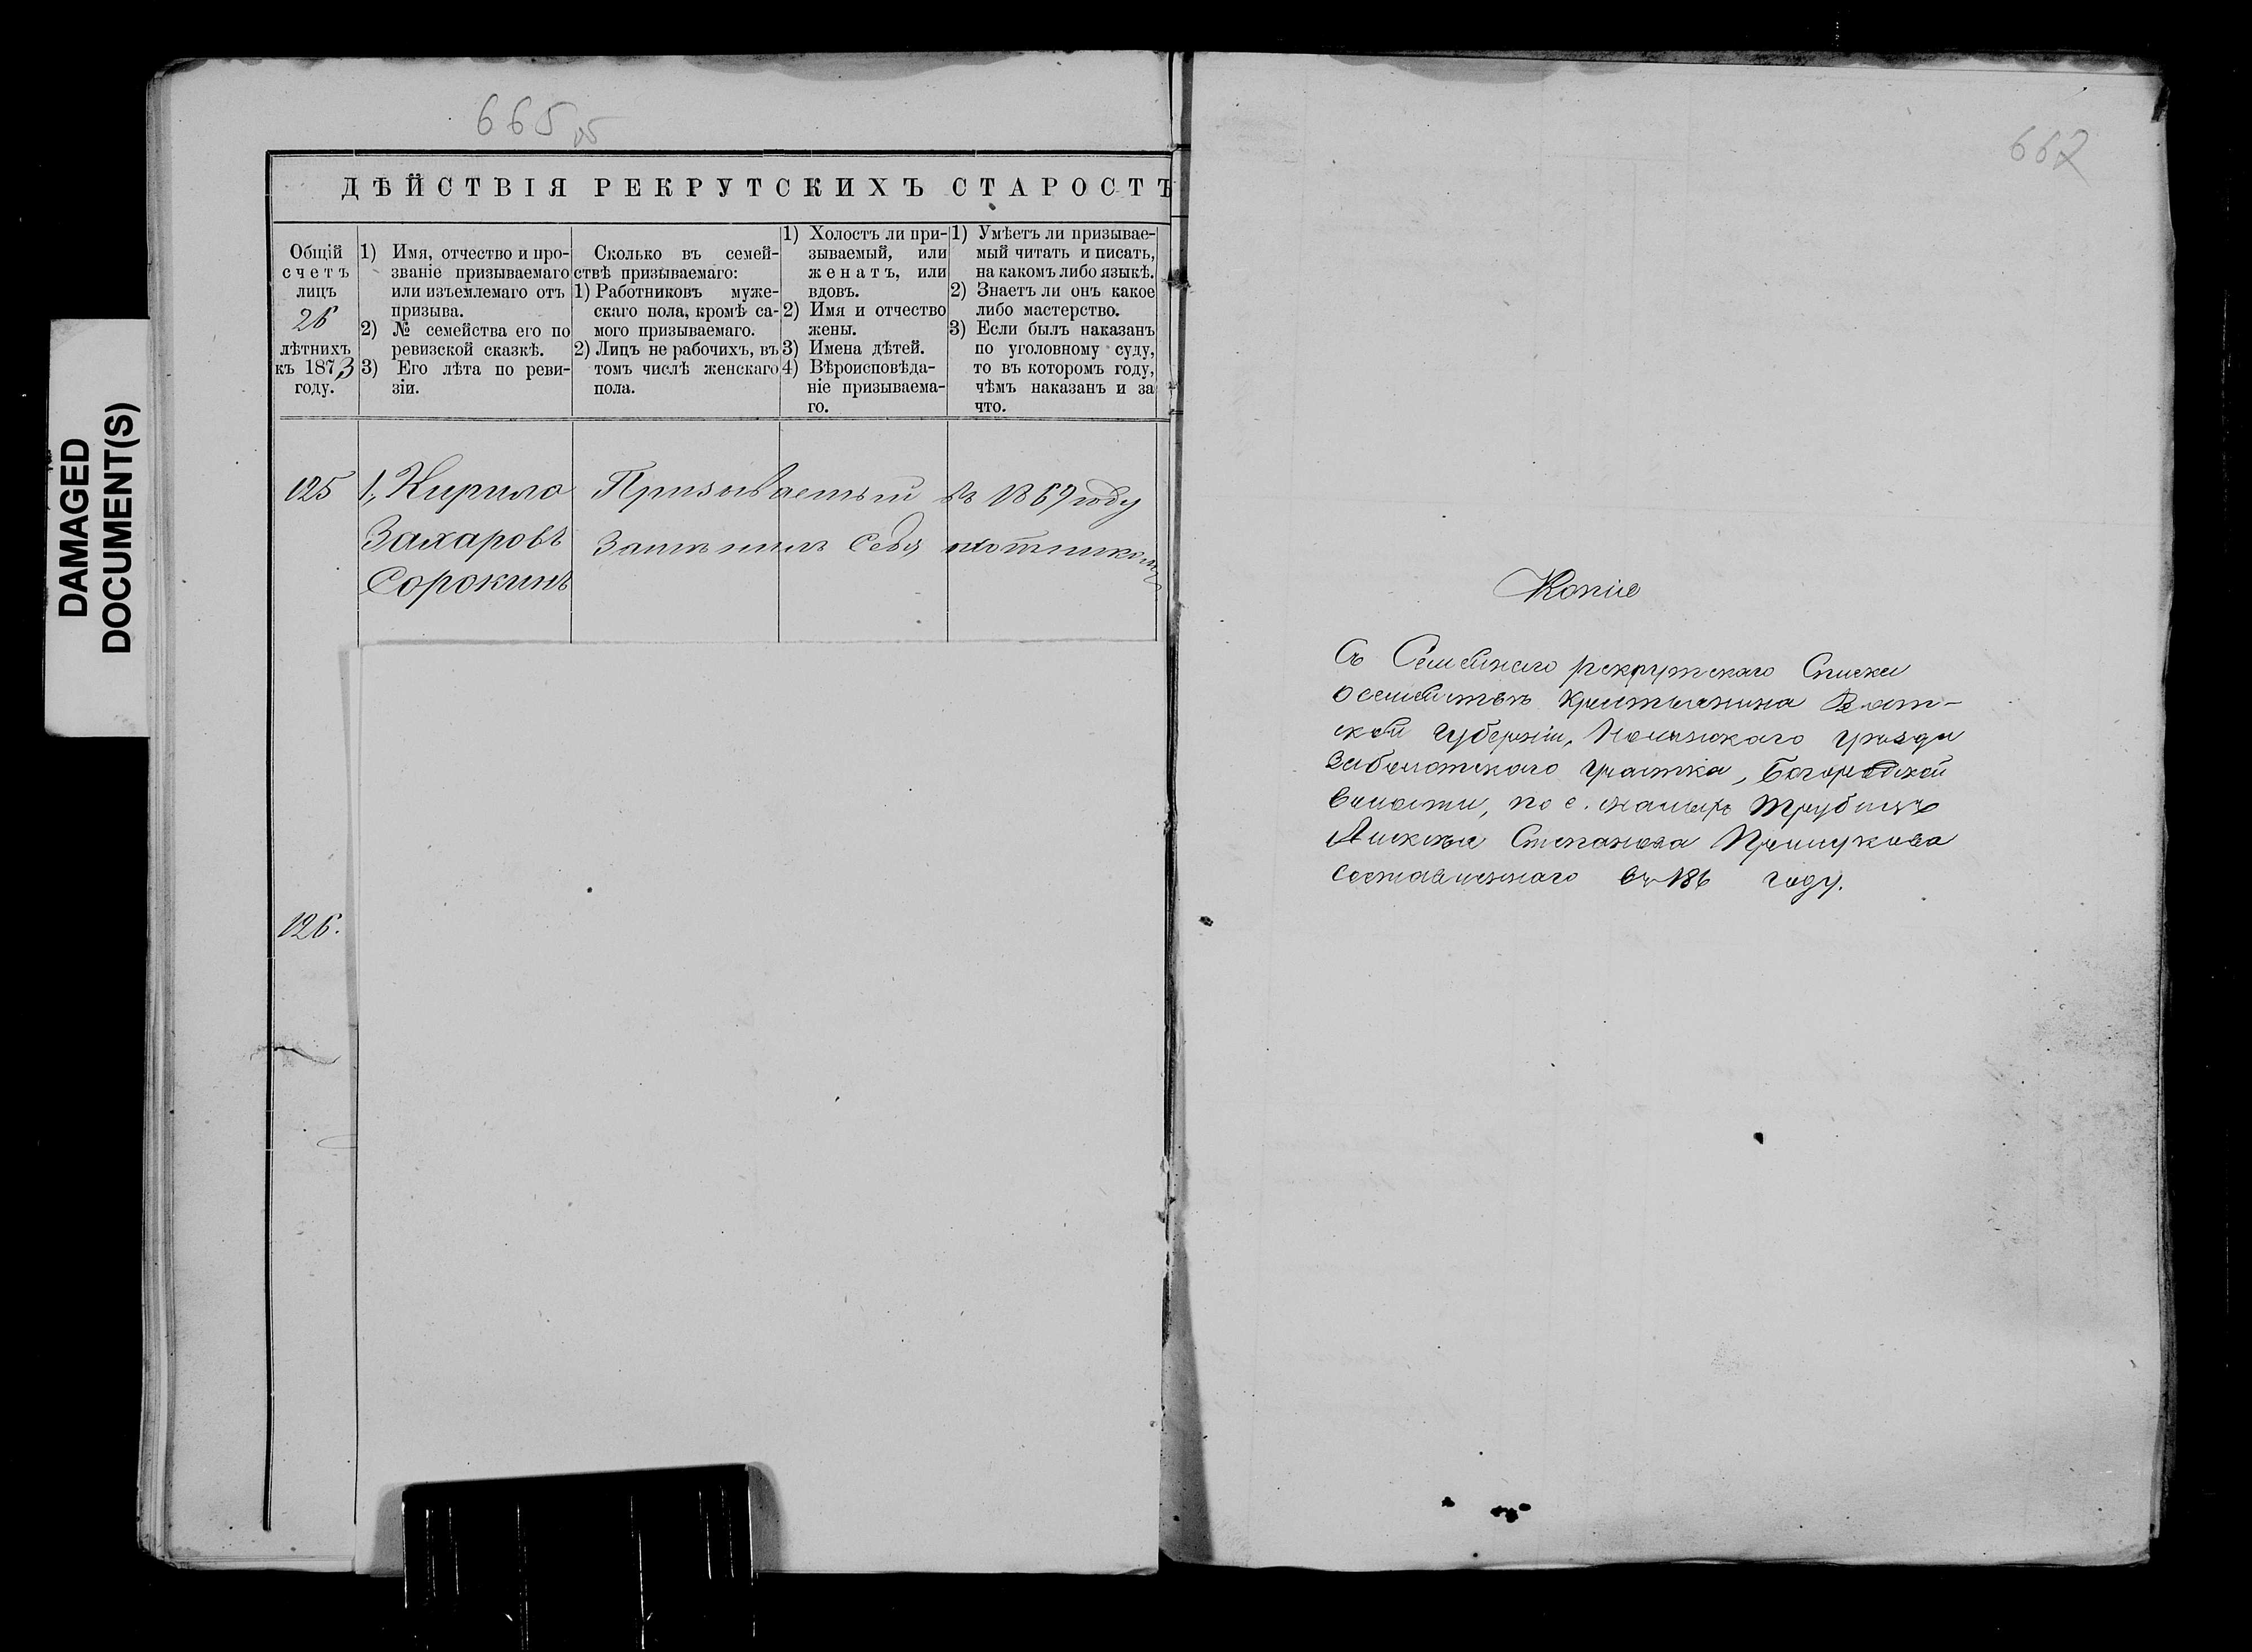 DAMAGED
DOCUMENT(S)
665 об
ДѢЙСТВІЯ РЕКРУТСКИХЪ СТАРОСТЪ
Общій
счетъ
лицъ
26
лѣтнихъ
къ 1873
году.
1) Имя, отчество и про-
званіе призываемаго
или изъемлемаго отъ
призыва.
2) № семейства его по
ревизской сказкѣ.
3) Его лѣта по реви-
зіи.
Сколько въ семей-
ствѣ призываемаго:
1) Работниковъ муже-
скаго пола, кромѣ са-
мого призываемаго.
2) Лицъ не рабочихъ, въ
томъ числѣ женскаго
пола.
1) Холостъ ли при-
зываемый, или
женатъ, или
вдовъ.
2) Имя и отчество
жены.
3) Имена дѣтей.
4) Вѣроисповѣда-
ніе призываема-
го.
1) Умѣетъ ли призывае-
мый читать и писать,
на какомъ либо языкѣ.
2) Знаетъ ли онъ какое
либо мастерство.
3) Если былъ наказанъ
по уголовному суду,
то въ которомъ году,
чѣмъ наказанъ и за
что.
125 1, Кирило Призываемый въ 1869 году
Захаровъ Замѣнилъ себя охотникомъ
Сорокинъ
126.
667
Копія
Съ Семейнаго рекрутскаго Списка
о семействѣ Крестьянина Вят-
ской Губерніи, Нолинскаго уѣзда
участка, Богородской
волости, по с.
Степанова
составленнаго въ 186 году.